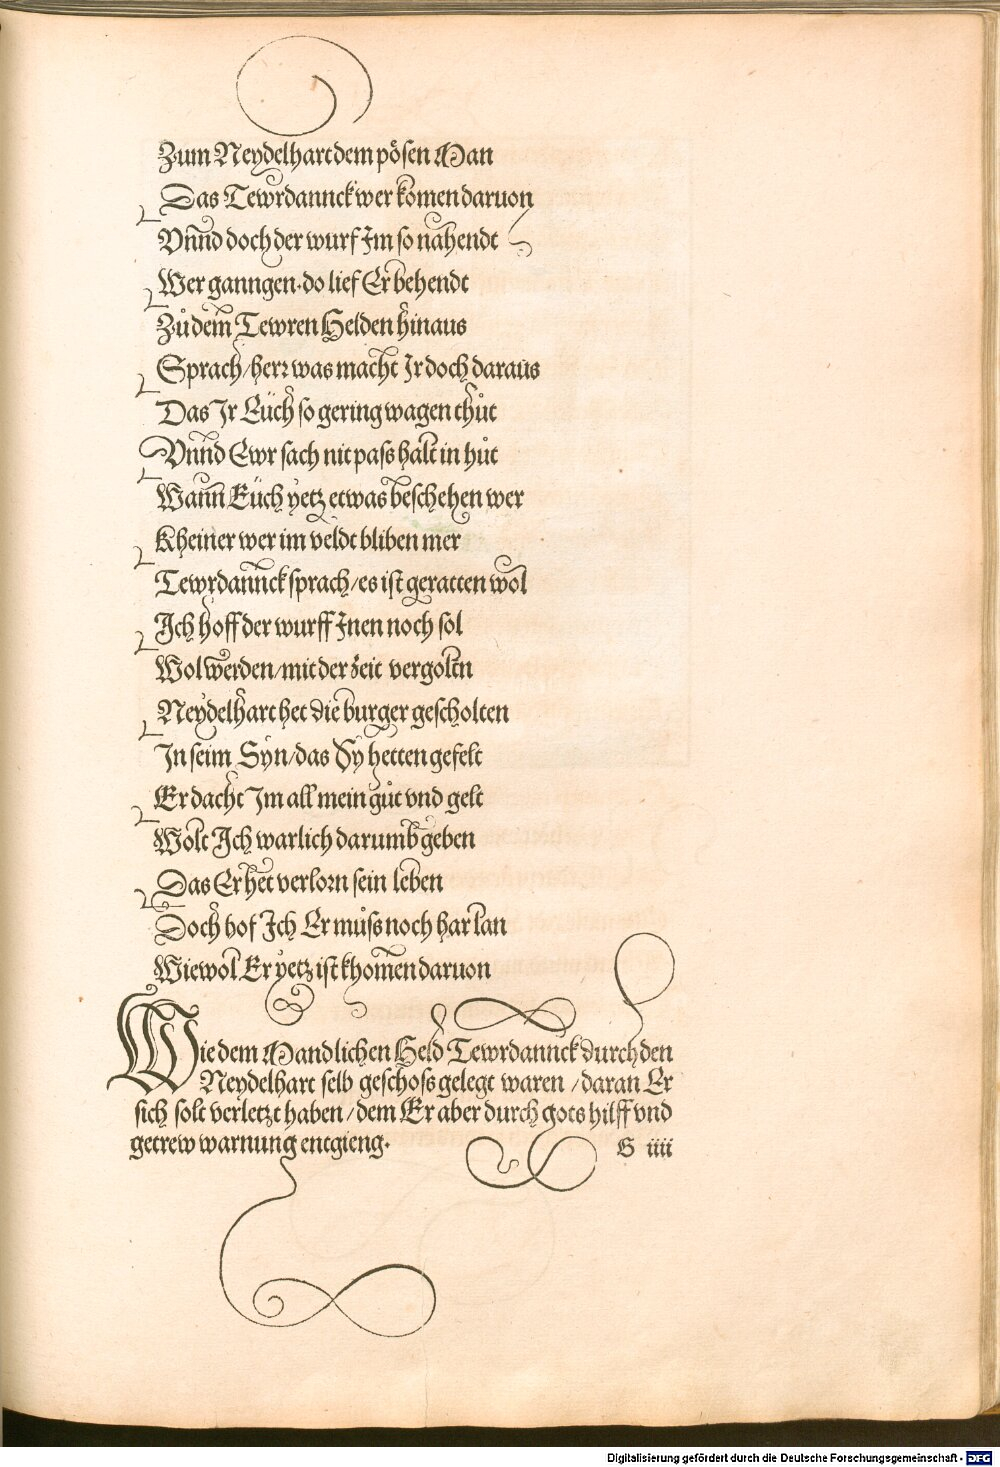 Zum Neydelhart dem pősen Man
Das Tewrdannck wer komen daruon
Vnnd doch der wurf Im so nahendt
Wer ganngen. do lief Er behendt
Zů dem Tewren Helden hinaus
Sprach / herr was macht Ir doch daraus
Das Ir Eüch so gering wagen thůt
Vnnd Ewr sach nit pass halt in hůt
Wann Eüch yetz etwas beschehen wer
Kheiner wer im veldt bliben mer
Tewrdannck sprach / es ist geratten wol
Ich hoff der wurff Inen noch sol
Wol werden / mit der zeit vergoltn
Neydelhart het die burger gescholten
In seim Syn / das Sy hetten gefelt
Er dacht Im all mein gůt vnd gelt
Wolt Ich warlich darumb geben
Das Er het verlorn sein leben
Doch hof Ich Er můss noch har lan
Wiewol Er yetz ist khomen daruon
Wie dem Mandlichen Held Tewrdannck durch den
Neydelhart selb geschoss gelegt waren / daran Er
sich solt verletzt haben / dem Er aber durch gots hilff vnd
getrew warnung entgieng.
G iiii
Digitalisierung gefördert durch die Deutsche Forschungsgemeinschaft - DFG